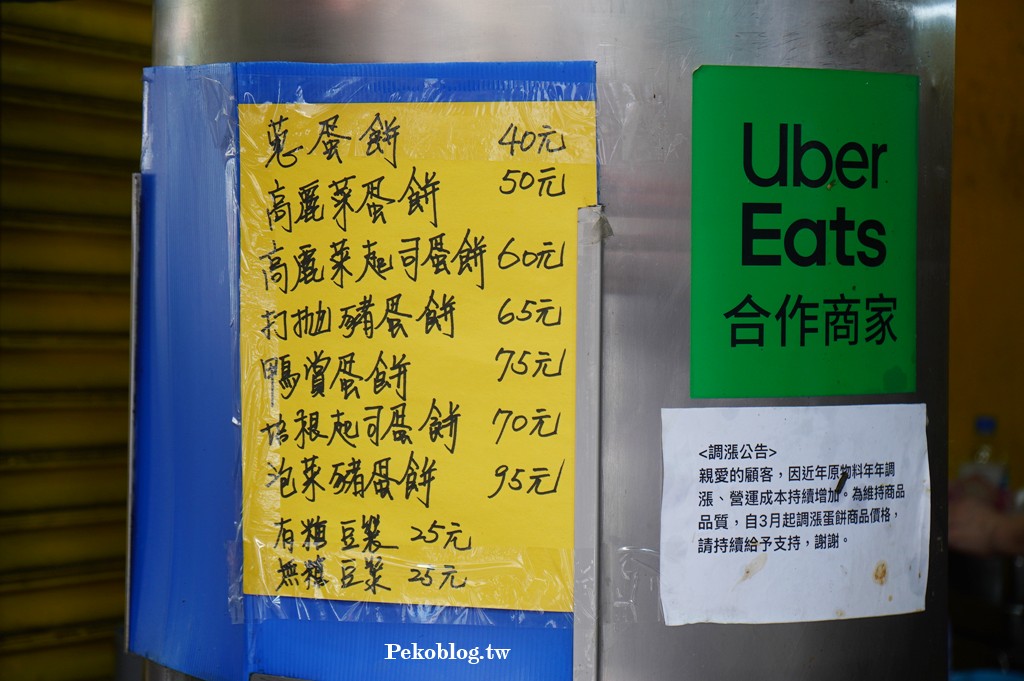 蔥蛋餅 40元
高麗菜蛋餅 50元
高麗菜起司蛋餅 60元
打拋豬蛋餅 65元
鴨賞蛋餅 75元
培根起司蛋餅 70元
泡菜豬蛋餅 95元
有糖豆漿 25元
無糖豆漿 25元
Uber
Eats
合作商家
<調漲公告>
親愛的顧客，因近年原物料年年調
漲、營運成本持續增加。為維持商品
品質，自3月起調漲蛋餅商品價格，
請持續給予支持，謝謝。
Pekoblog.tw